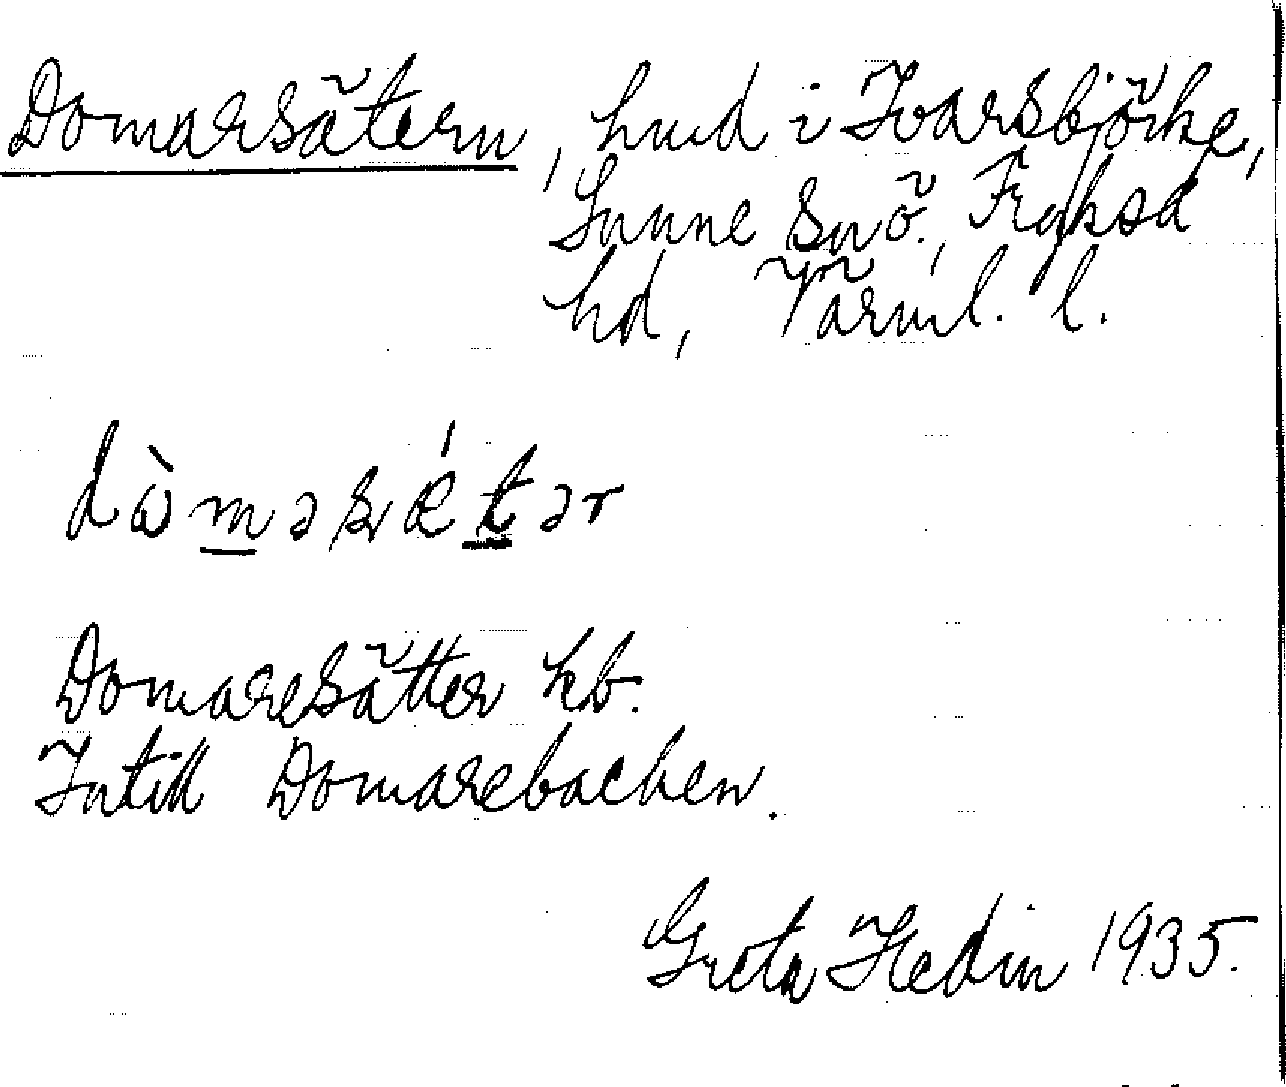 Domarsätern, hmd i Ivarsbjörke,
Sunne snö., Fryksd
hd, Värml. l.
dὼmasǽtər
Domaresätter kb.
Intill Domarebacken.
Greta Hedin 1935.